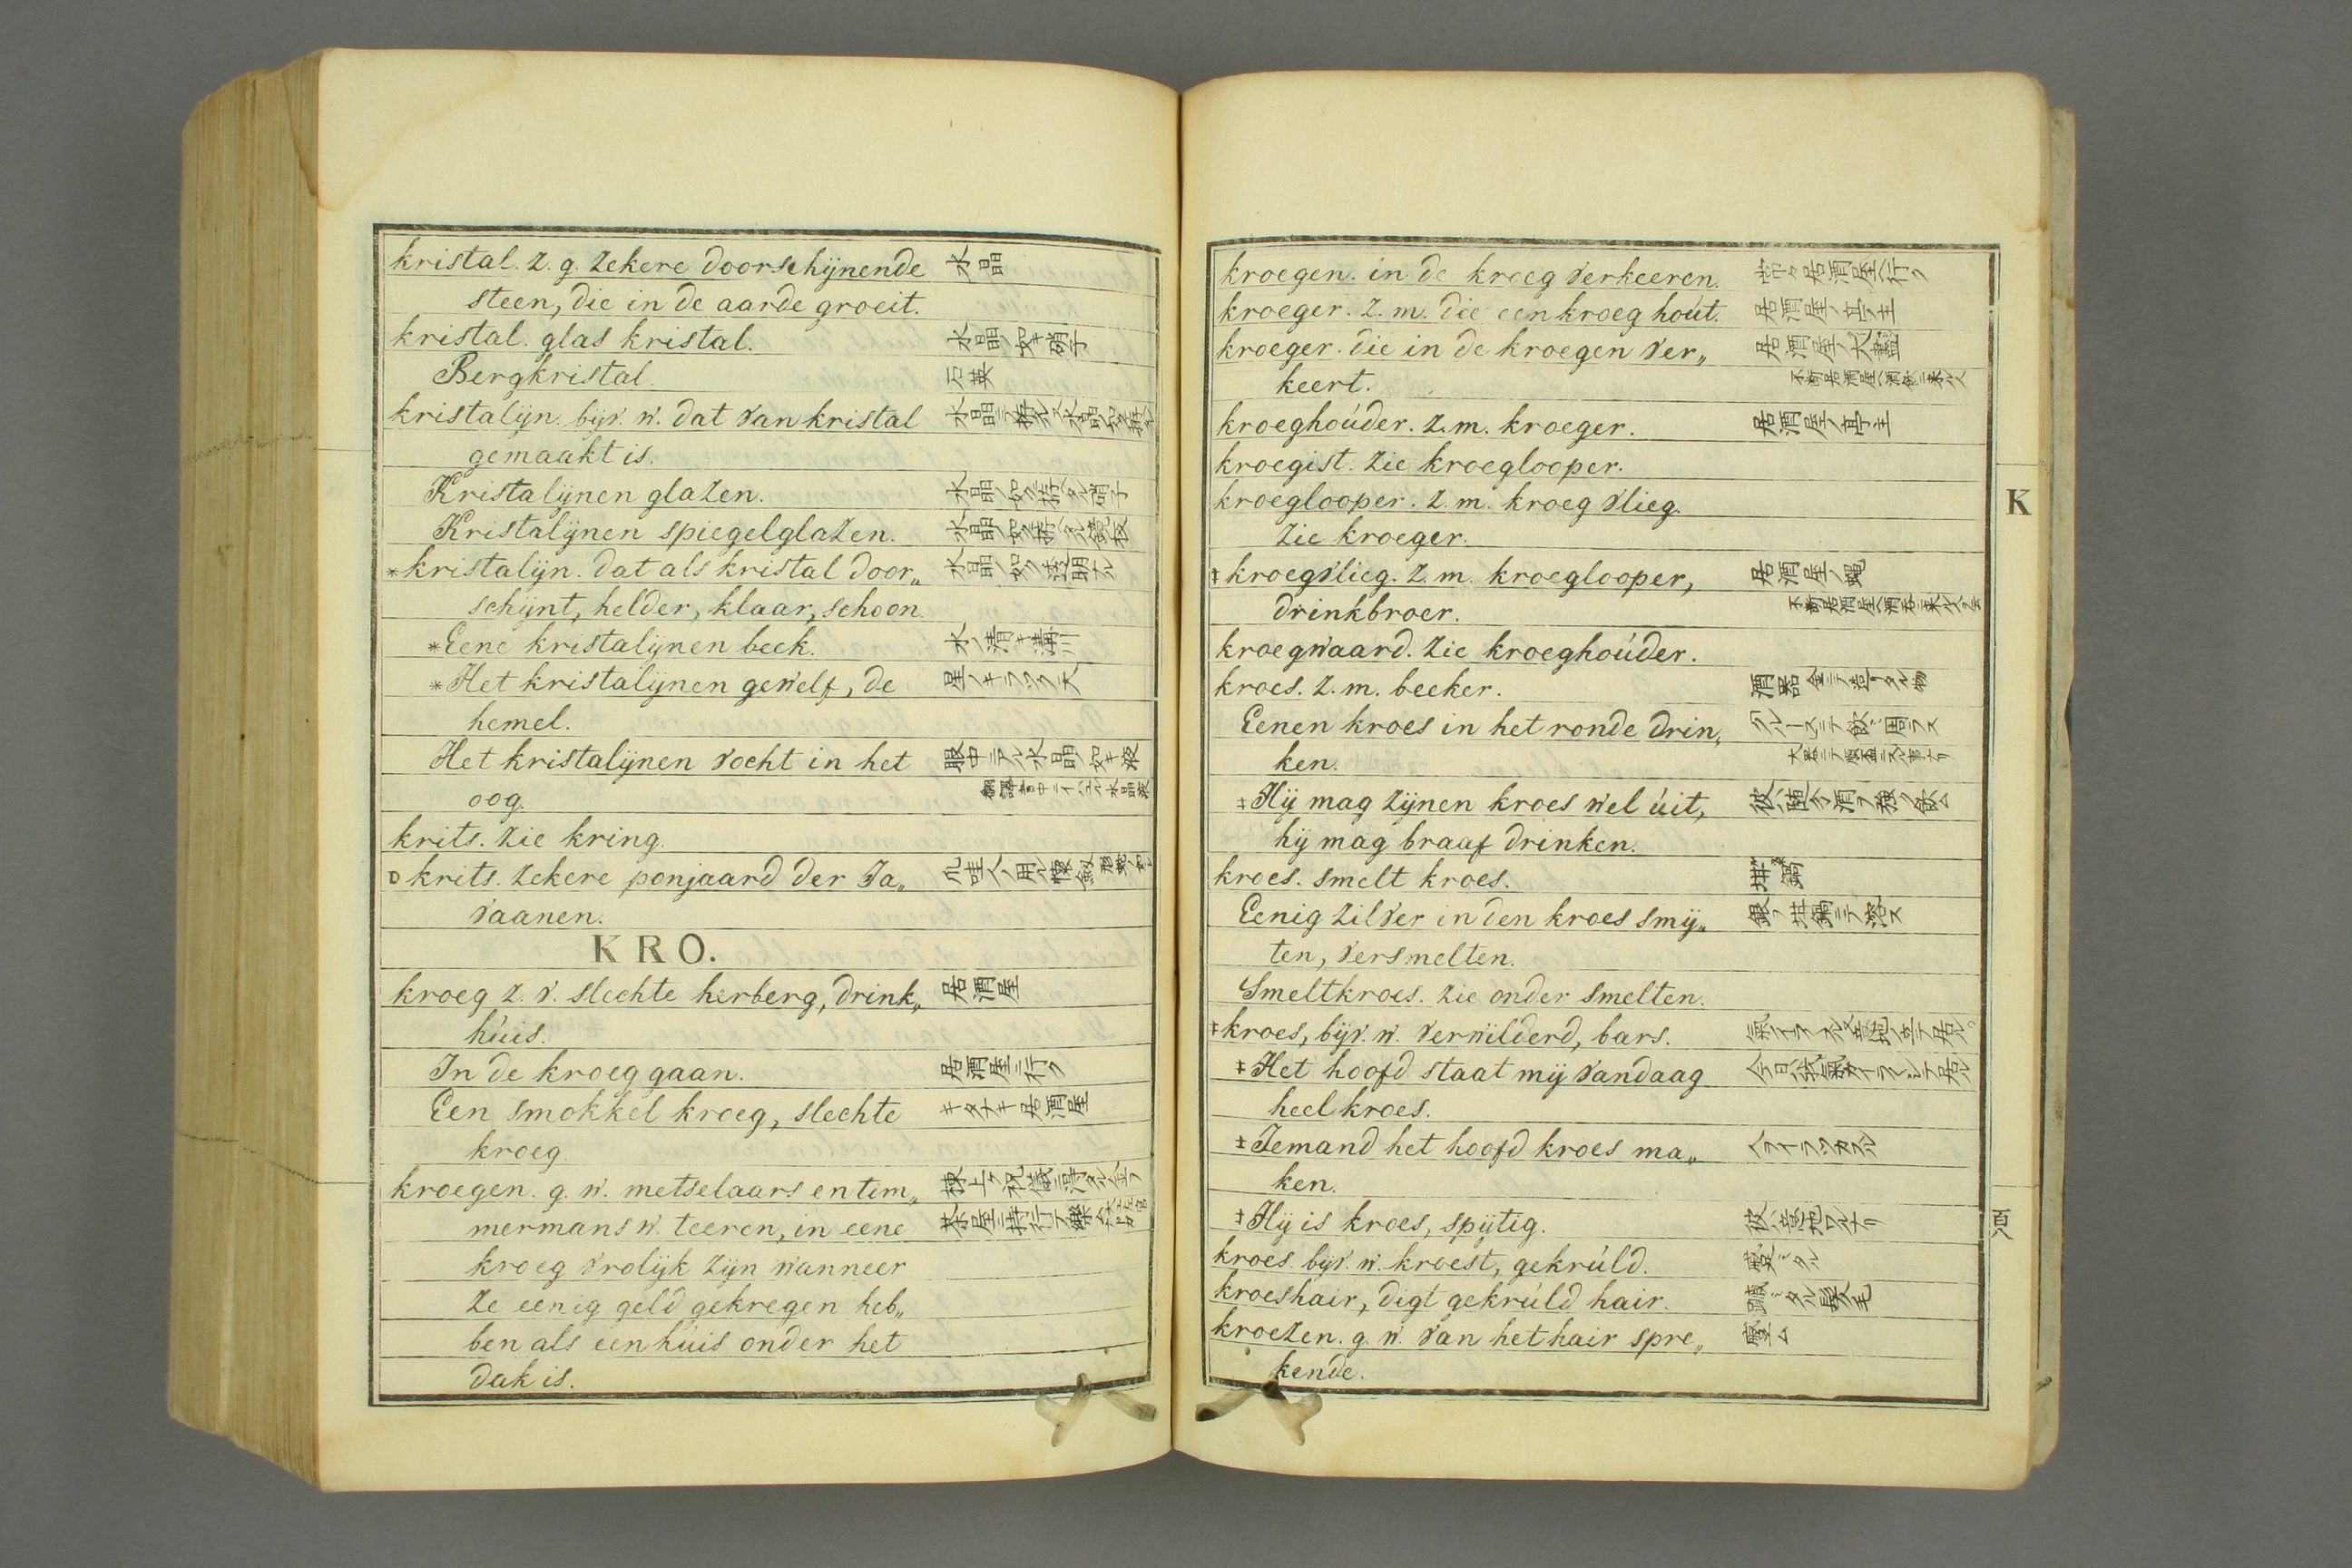 kristal. z. g. zekere doorschijnende 水晶
steen, die in de aarde groeit.
kristal. glas kristal. 水晶ノ如キ硝子
Bergkristal. 石英
kristalijn. bijv. w. dat van kristal 水晶ニテ拵ヘタル
gemaakt is.
Kristalijnen glazen. 水晶ノ如ク拵ヘタル硝子
Kristalijnen spiegelglazen. 水晶ノ如ク拵ヘタル鏡板
*kristalijn. dat als kristal door„ 水晶ノ如ク透明ナル
schijnt, helder, klaar, schoon.
*Eene kristalijnen beek. 水ノ清キ溝川
*Het kristalijnen gewelf, de 星ノキラツク天
hemel.
Het kristalijnen vocht in het 眼中ニアル水晶ノ如キ液
oog.
krits. zie kring.
krits. zekere ponjaard der Ja„ 爪哇人ノ用ル懐剱
vaanen.
KRO.
kroeg z. v. slechte herberg, drink„ 居酒屋
húis.
In de kroeg gaan. 居酒屋ニ行ク
Een smokkel kroeg, slechte キタナキ居酒屋
kroeg.
kroegen. g. w. metselaars en tim„ 棟上ケ祝儀ニ得タル金ヲ
mermans w. teeren, in eene 茶屋ニ持行テ
kroeg vrolijk zijn wanneer
ze eenig geld gekregen heb„
ben als een húis onder het
dak is.
kroegen. in de kroeg verkeeren. 常々居酒屋ヘ行ク
kroeger. z. m. die een kroeg hoút. 居酒屋ノ亭主
kroeger. die in de kroegen ver„ 居酒屋ノ
keert.
kroeghoúder. z. m. kroeger. 居酒屋ノ亭主
kroegist. zie kroeglooper.
kroeglooper. z. m. kroeg vlieg.
zie kroeger.
‡kroegvlieg. z. m. kroeglooper, 居酒屋ノ蠅
drinkbroer.
kroegwaard. zie kroeghoúder.
kroes. z. m. beeker. 酒器 金ニテ造リタル物
Eenen kroes in het ronde drin„ クルースニテ飲ミ周ラス
ken.
‡Hij mag zijnen kroes wel úit, 彼ハ随分酒ヲ強ク飲ム
hij mag braaf drinken.
kroes. smelt kroes. 坩鍋
Eenig zilver in den kroes smij„ 銀ヲ坩鍋ニテ溶ス
ten, versmelten.
Smeltkroes. zie onder smelten.
‡kroes, bijv. w. verwilderd, bars.
‡Het hoofd staat mij vandaag 今日ハ我氣カイライラシテ居ル
heel kroes.
‡Iemand het hoofd kroes ma„
ken.
‡Hij is kroes, spijtig. 彼ハ意地ワルナリ
kroes. bijv. w. kroest, gekrúld.
kroeshair, digt gekrúld hair.
kroezen. g. w. van het hair spre„
kende.
K